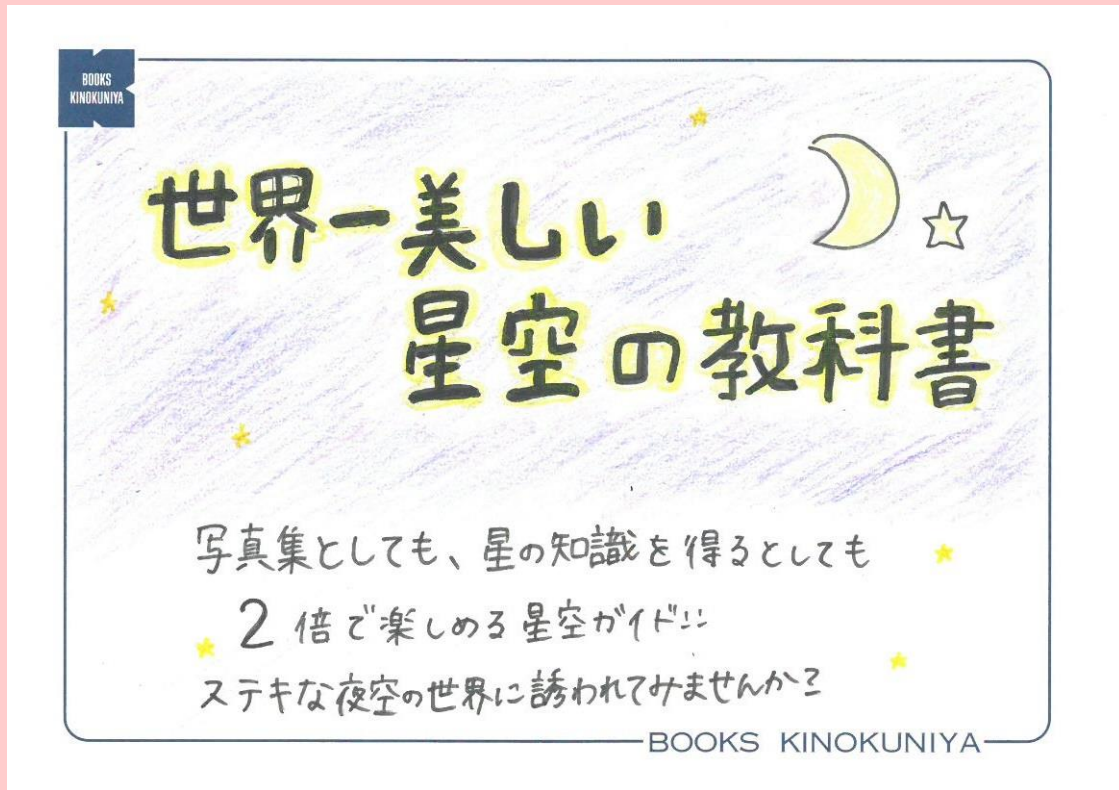 BOOKS
KINOKUNIYA
世界一美しい
星空の教科書
写真集としても、星の知識を得るとしても
2倍で楽しめる星空ガイド!!
ステキな夜空の世界に誘われてみませんか?
BOOKS KINOKUNIYA